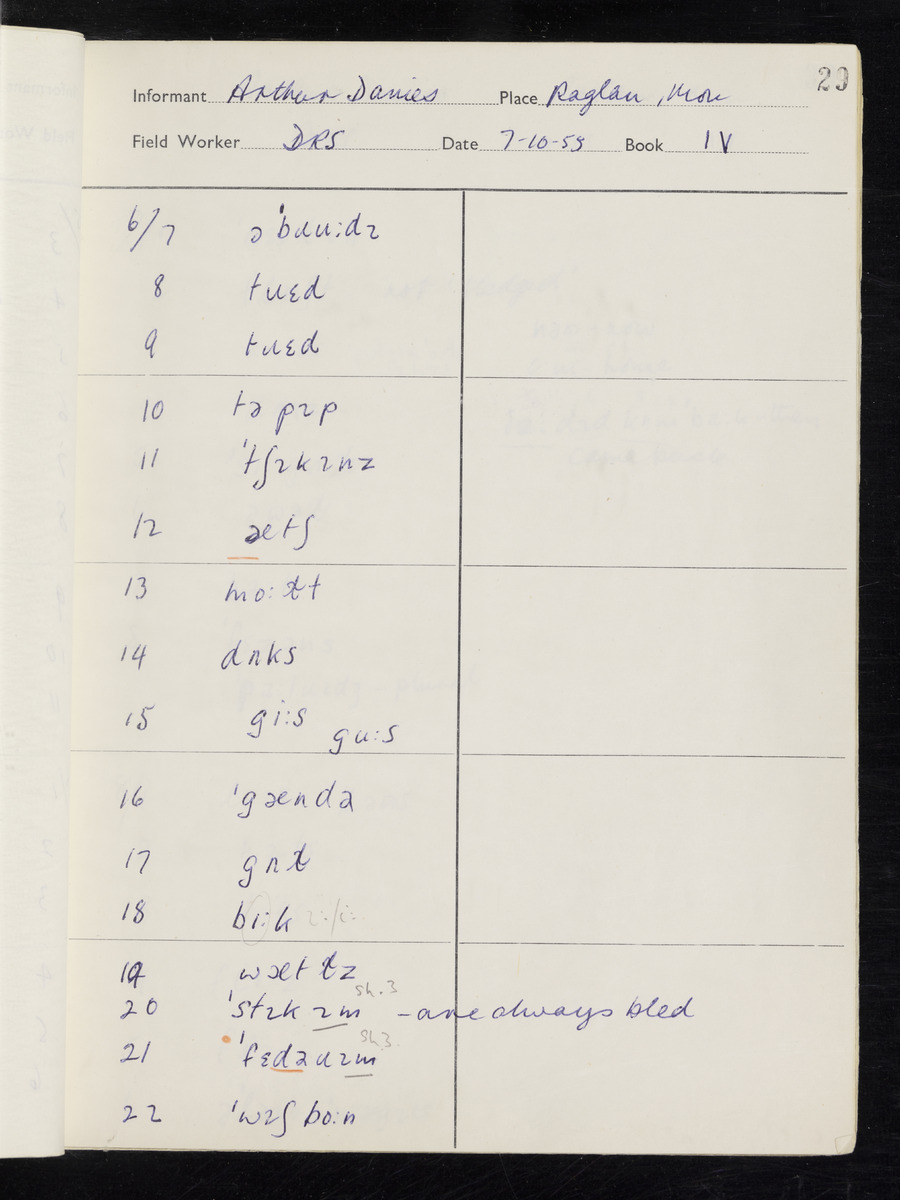 29
Informant Arthur Davies Place Raglan, Mon
Field Worker DRS Date 7-10-55 Book IV
6/7 əˈbɹuːdɪ
8 tɹɛd
9 tɹɛd
10 tə pɪp
11 ˈtʃɪkɪnz
12 ætʃ
13 moːɫt
14 dʌks
15 giːs
guːs
16 ˈgændə
17 gʌɫ
18 biːk
19 wætɫz
20 ˈstɪk ɪm – are always bled
sh.3
21 ˈfɛdəɹɪm
sh3
22 ˈwɪʃ boːn